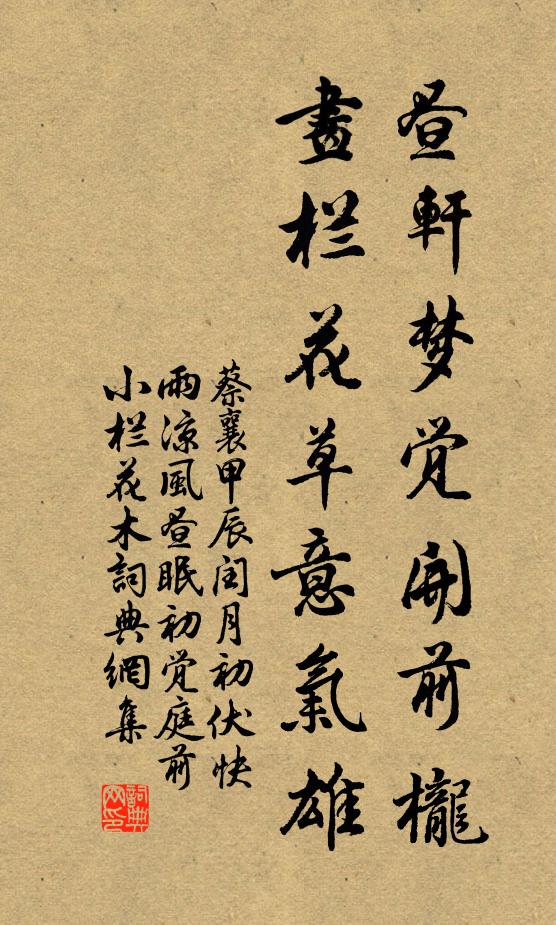 昼軒梦覚開前櫳
畫栏花草意氣雄
蔡襄甲辰闰月初伏快
雨涼風昼眠初覚庭前
小栏花木詞典網集
詞典网印